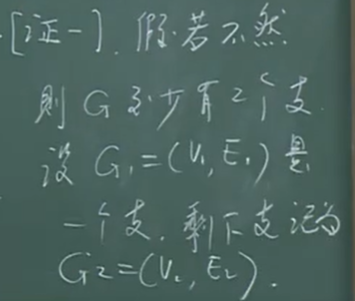 [证一]. 假若不然
则 G 至少有 2 个支.
设 G₁=(V₁, E₁) 是
一个支. 剩下支记为
G₂=(V₂, E₂).